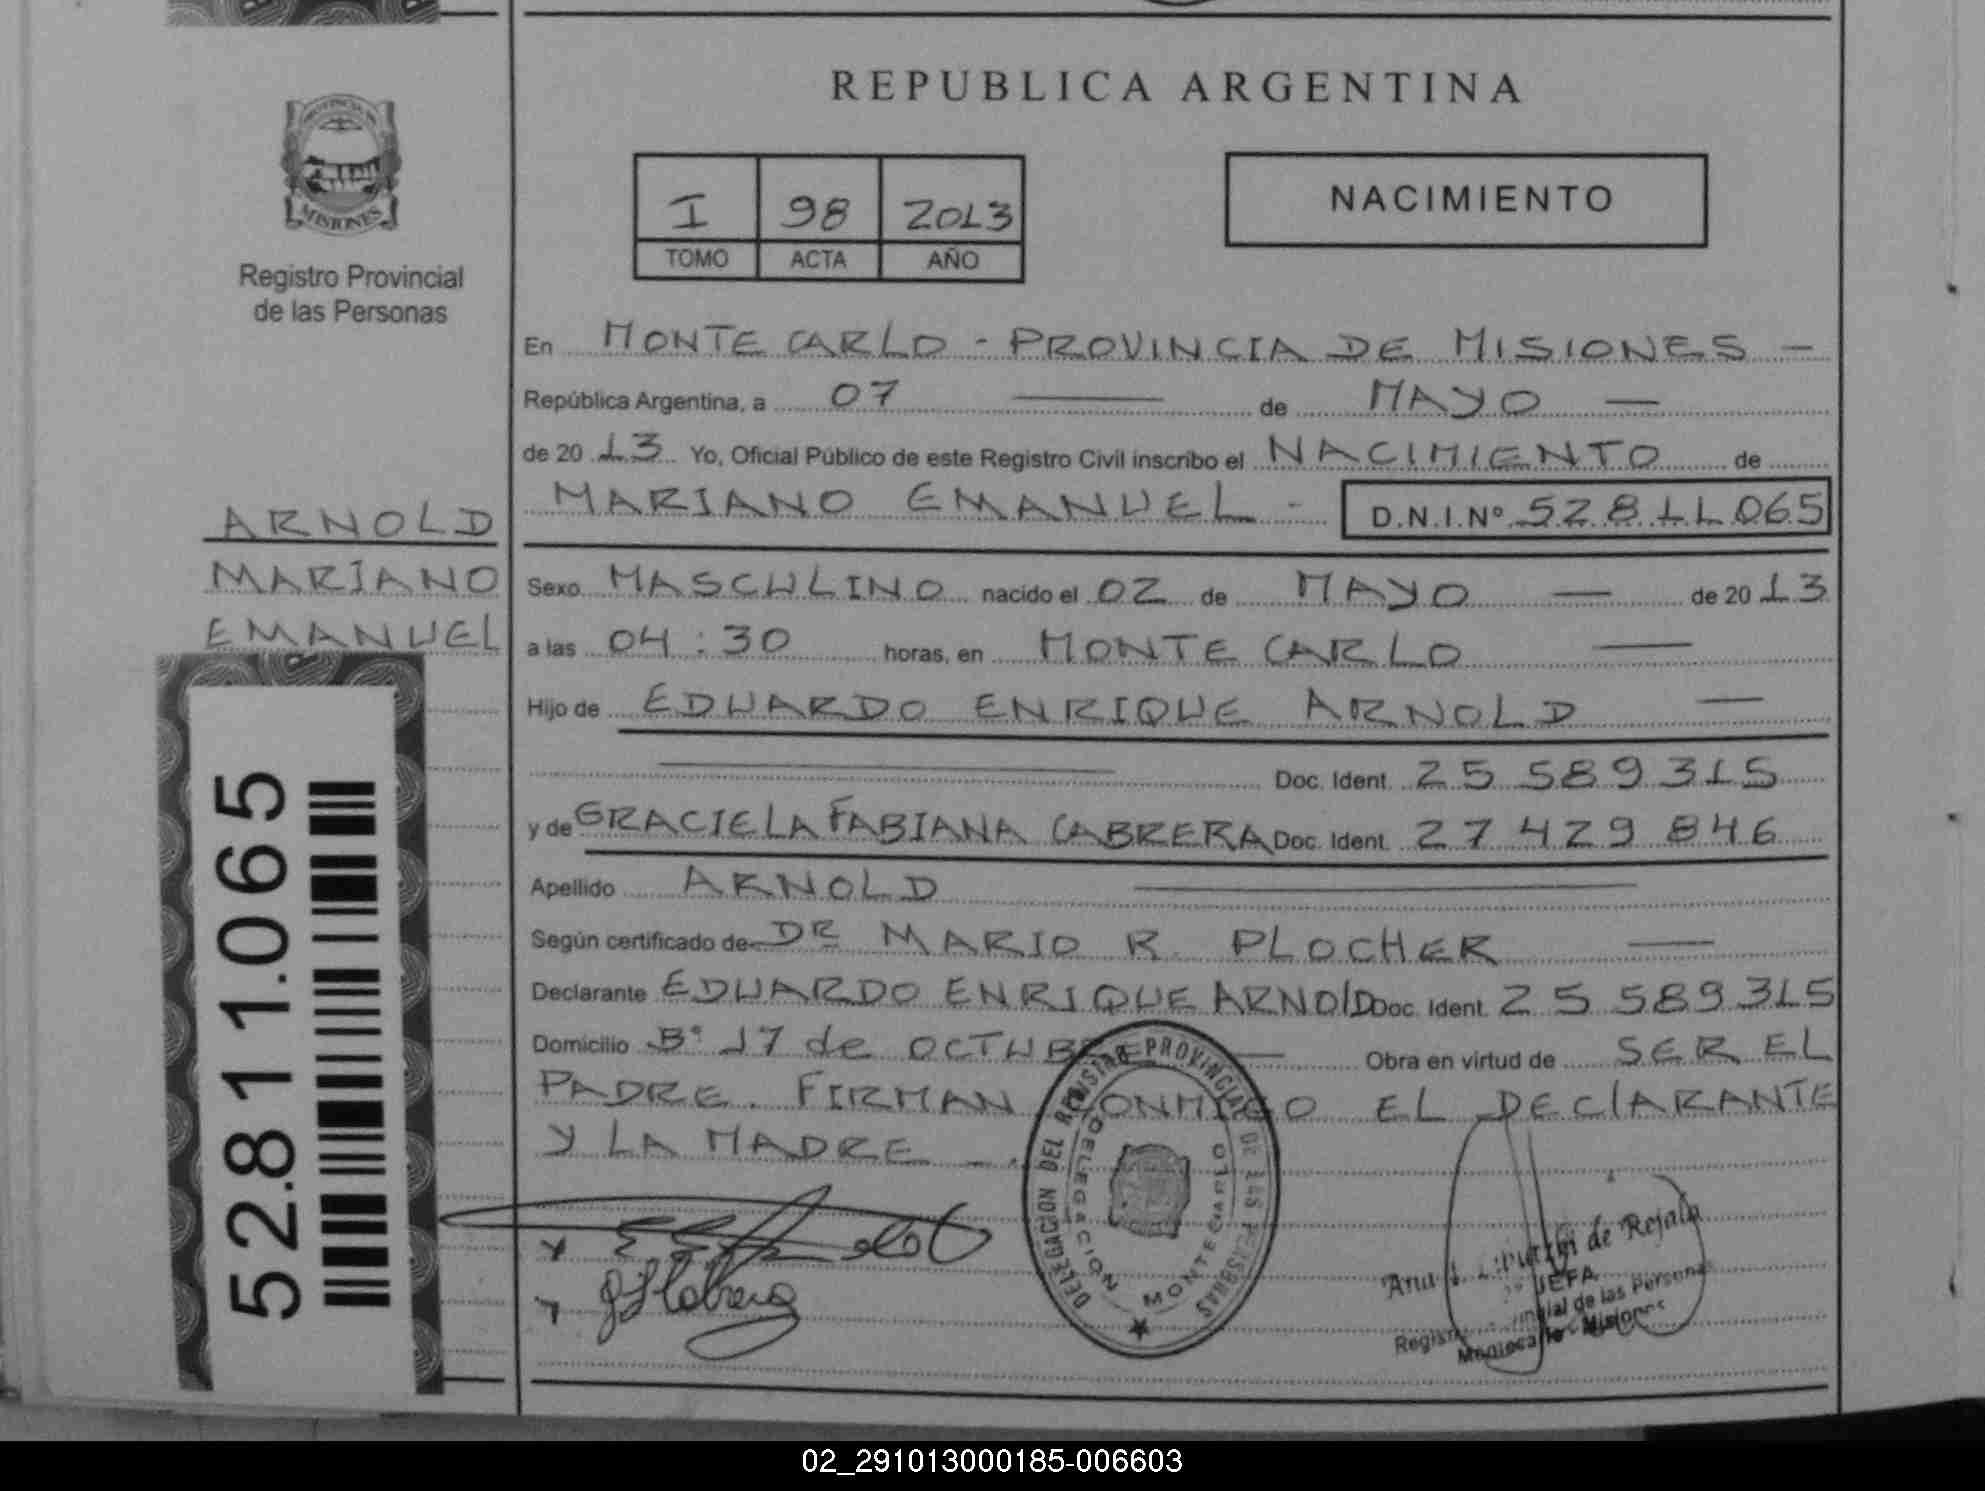 REPUBLICA ARGENTINA
PROVINCIA DE
MISIONES
Registro Provincial
de las Personas
I 98 2013
TOMO ACTA AÑO
NACIMIENTO
En MONTE CARLO - PROVINCIA DE MISIONES -
República Argentina, a 07 — de MAYO —
de 20 13 Yo, Oficial Público de este Registro Civil inscribo el NACIMIENTO de
MARIANO EMANUEL - D.N.I.Nº 52811065
ARNOLD
MARIANO
EMANUEL
Sexo MASCULINO nacido el 02 de MAYO — de 20 13
a las 04:30 horas, en MONTE CARLO —
Hijo de EDUARDO ENRIQUE ARNOLD —
Doc. Ident. 25 589 315
y de GRACIELA FABIANA CABRERA Doc. Ident. 27 429 846
Apellido ARNOLD
Según certificado de DR MARIO R. PLOCHER —
Declarante EDUARDO ENRIQUE ARNOLD Doc. Ident. 25 589 315
Domicilio Bº 17 de OCTUBRE — Obra en virtud de SER EL
PADRE. FIRMAN CONMIGO EL DECLARANTE
Y LA MADRE —.
52.811.065
DELEGACION DEL REGISTRO PROVINCIAL DE LAS PERSONAS
DELEGACION MONTECARLO
Ana de Rejala
JEFA
de las Personas
Montecarlo - Misiones
02_291013000185-006603